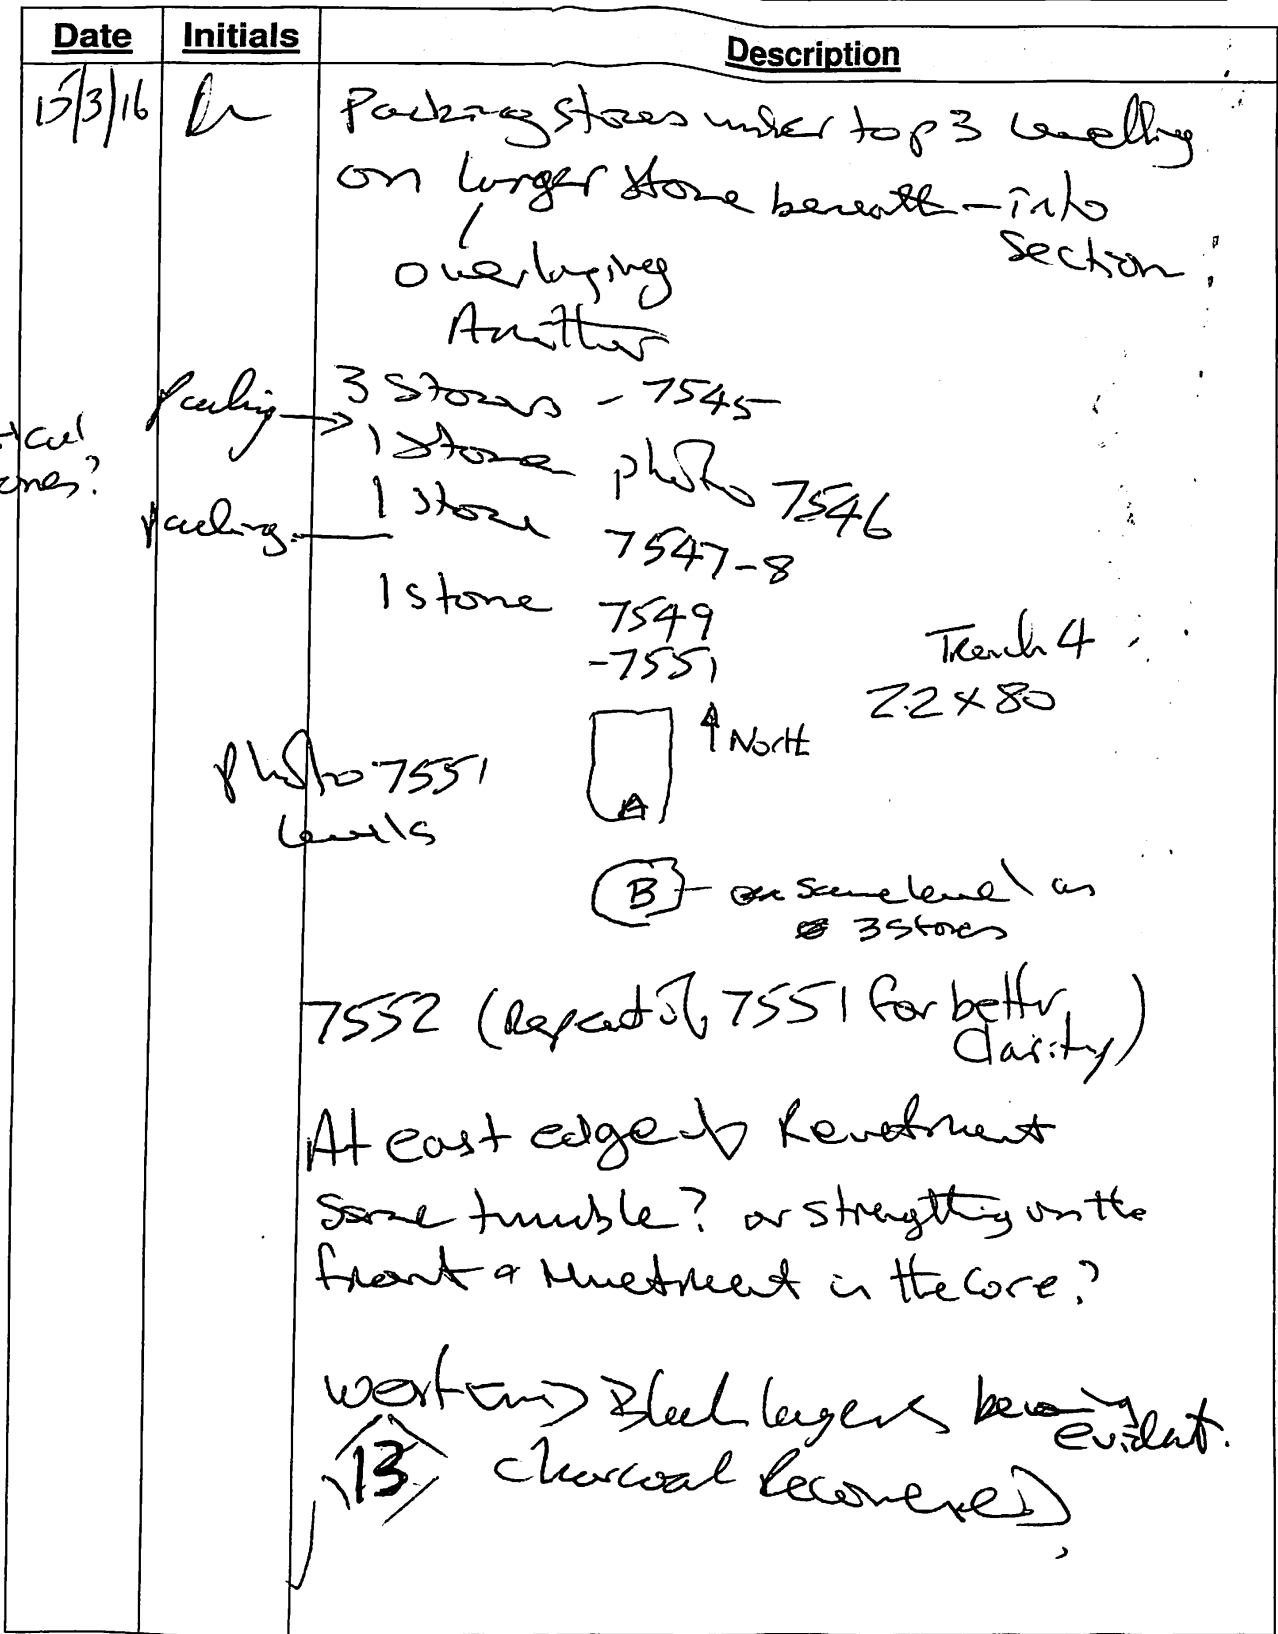 Date Initials Description
15/3/16 Packing stones under top 3 levelling
on larger stone beneath - into
section.
overlaying
Another
packing → 3 stones - 7545
1 stone photo 7546
ones?
packing. 1 stone 7547-8
1 stone 7549
-7551
Trench 4
2.2 x 80
↑ North
A
photo 7551
levels
B - same level as
3 stones
7552 (Repeat of 7551 for better
clarity)
At east edge of Revetment
some tumble? or strengthing on the
front & revetment in the core?
west end Black layers becoming
evident.
13 charcoal Recovered.